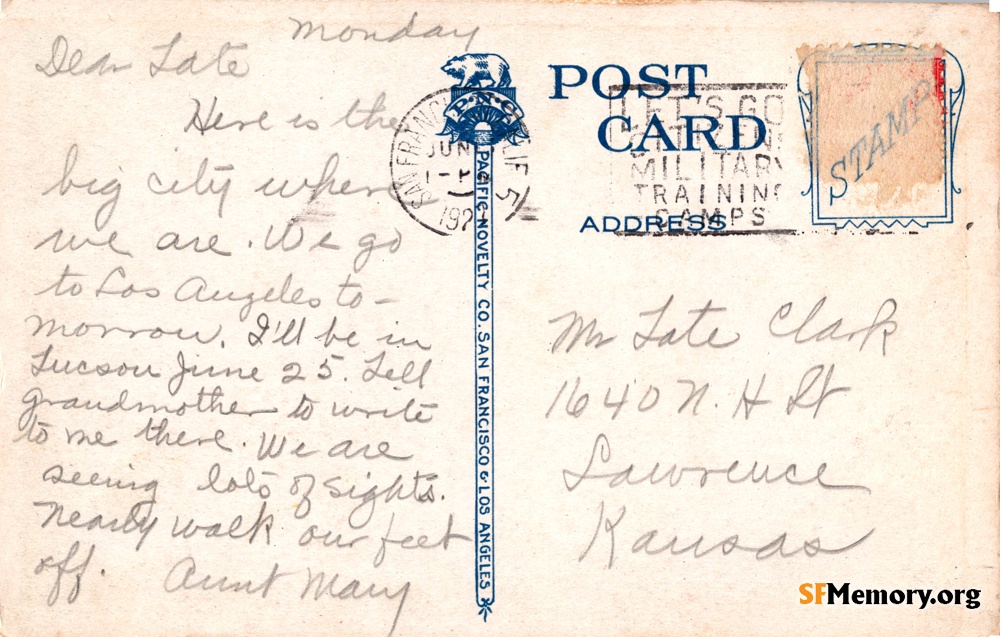 Monday
Dear Tate
Here is the
big city where
we are. We go
to Los Angeles to-
morrow. I'll be in
Tucson June 25. Tell
grandmother to write
to me there. We are
seeing lots of sights.
Nearly walk our feet
off. Aunt Mary
P.N.C.
PACIFIC NOVELTY CO. SAN FRANCISCO & LOS ANGELES
POST
CARD
ADDRESS
SAN FRANCISCO CALIF 5
JUN
192
LET'S GO
MILITARY
TRAINING
CAMPS
STAMP
Mr Tate Clark
1640 N. H St
Lawrence
Kansas
SFMemory.org